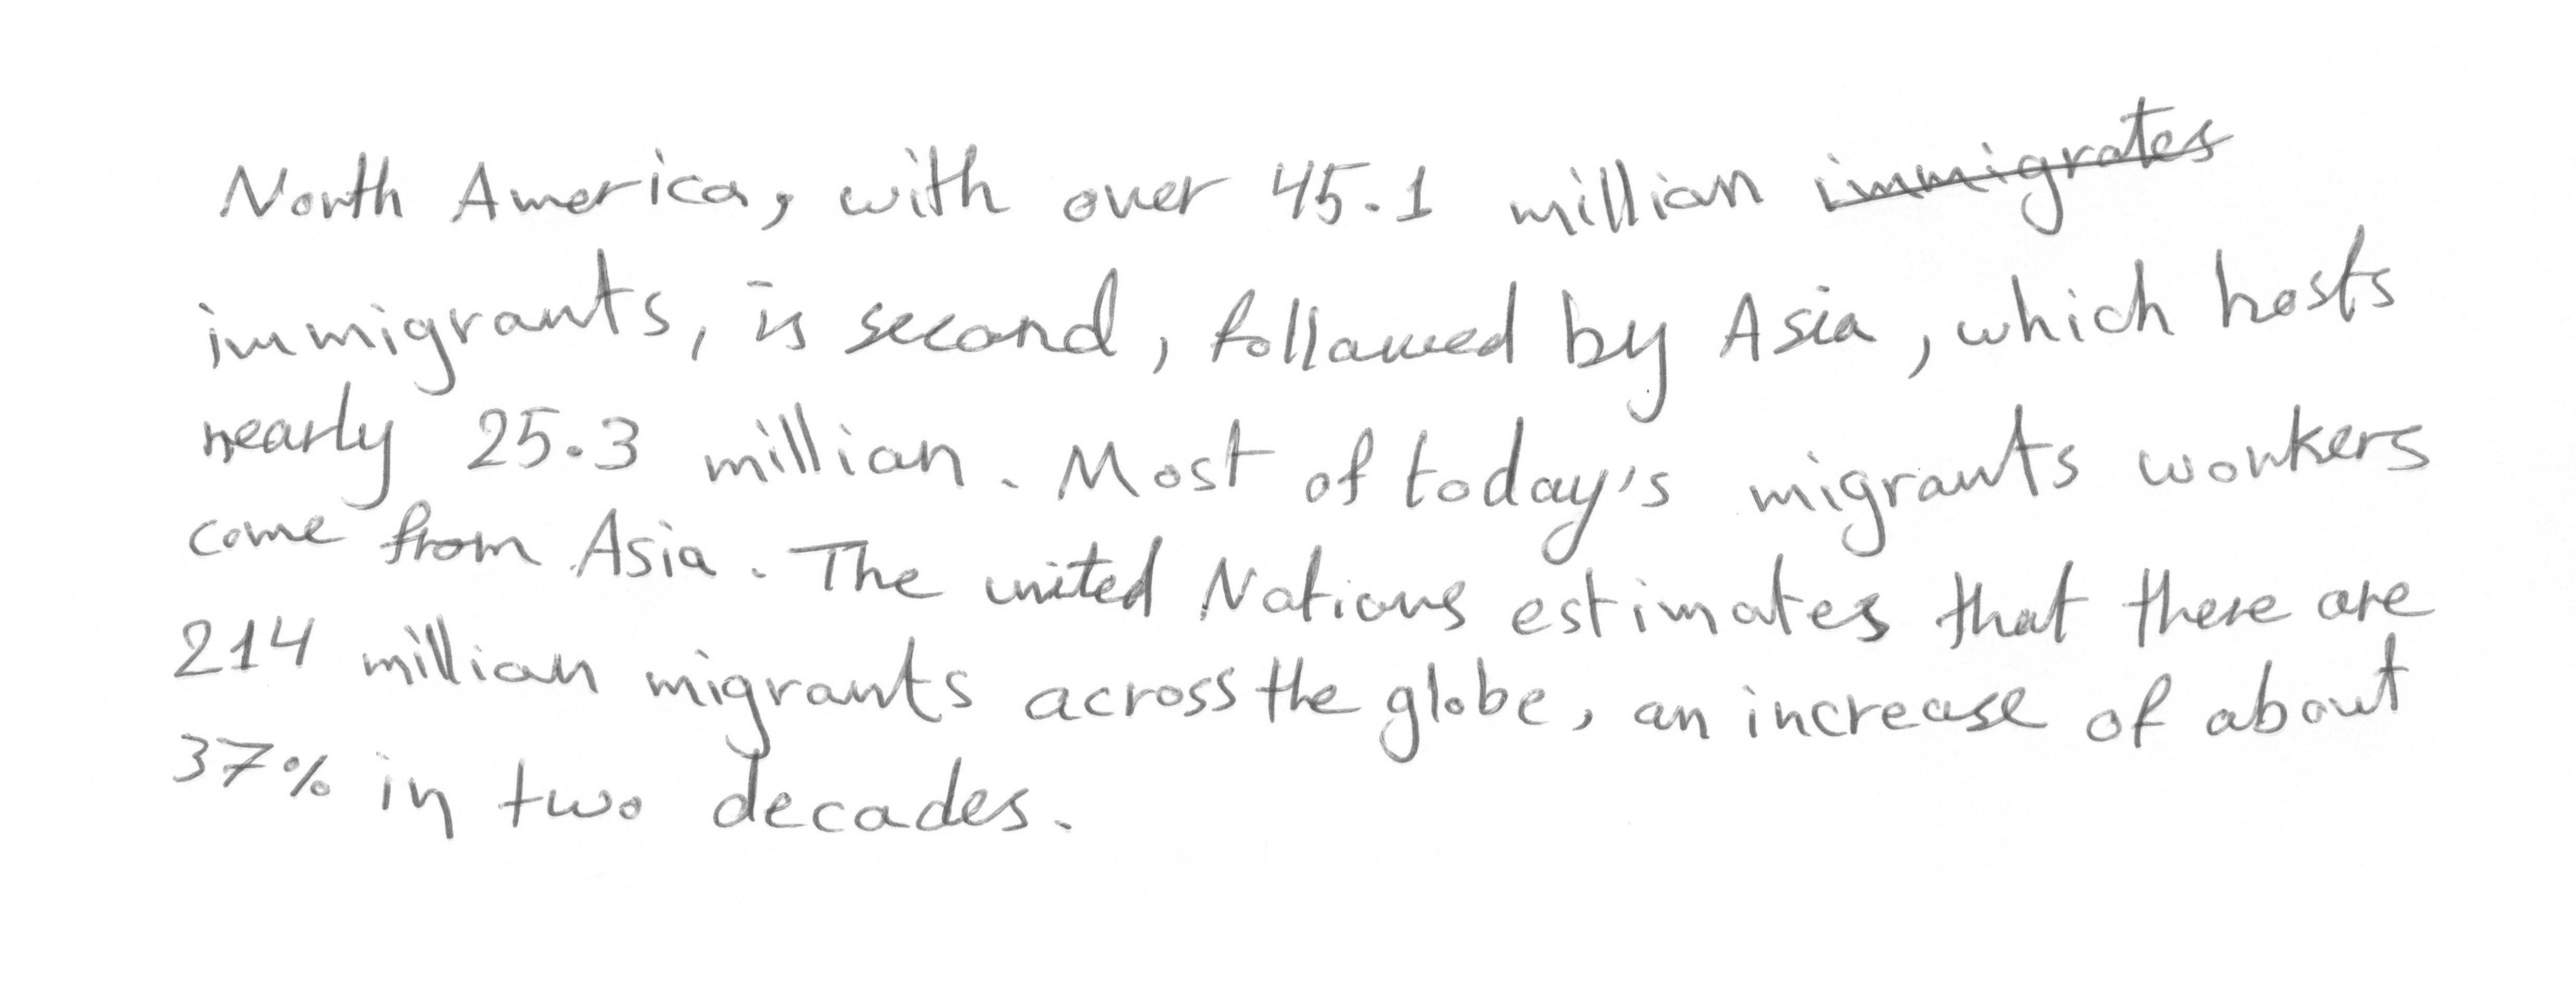 North America, with over 45.1 million immigrates
immigrants, is second, followed by Asia, which hosts
nearly 25.3 million. Most of today's migrants workers
come from Asia. The united Nations estimates that there are
214 million migrants across the globe, an increase of about
37% in two decades.